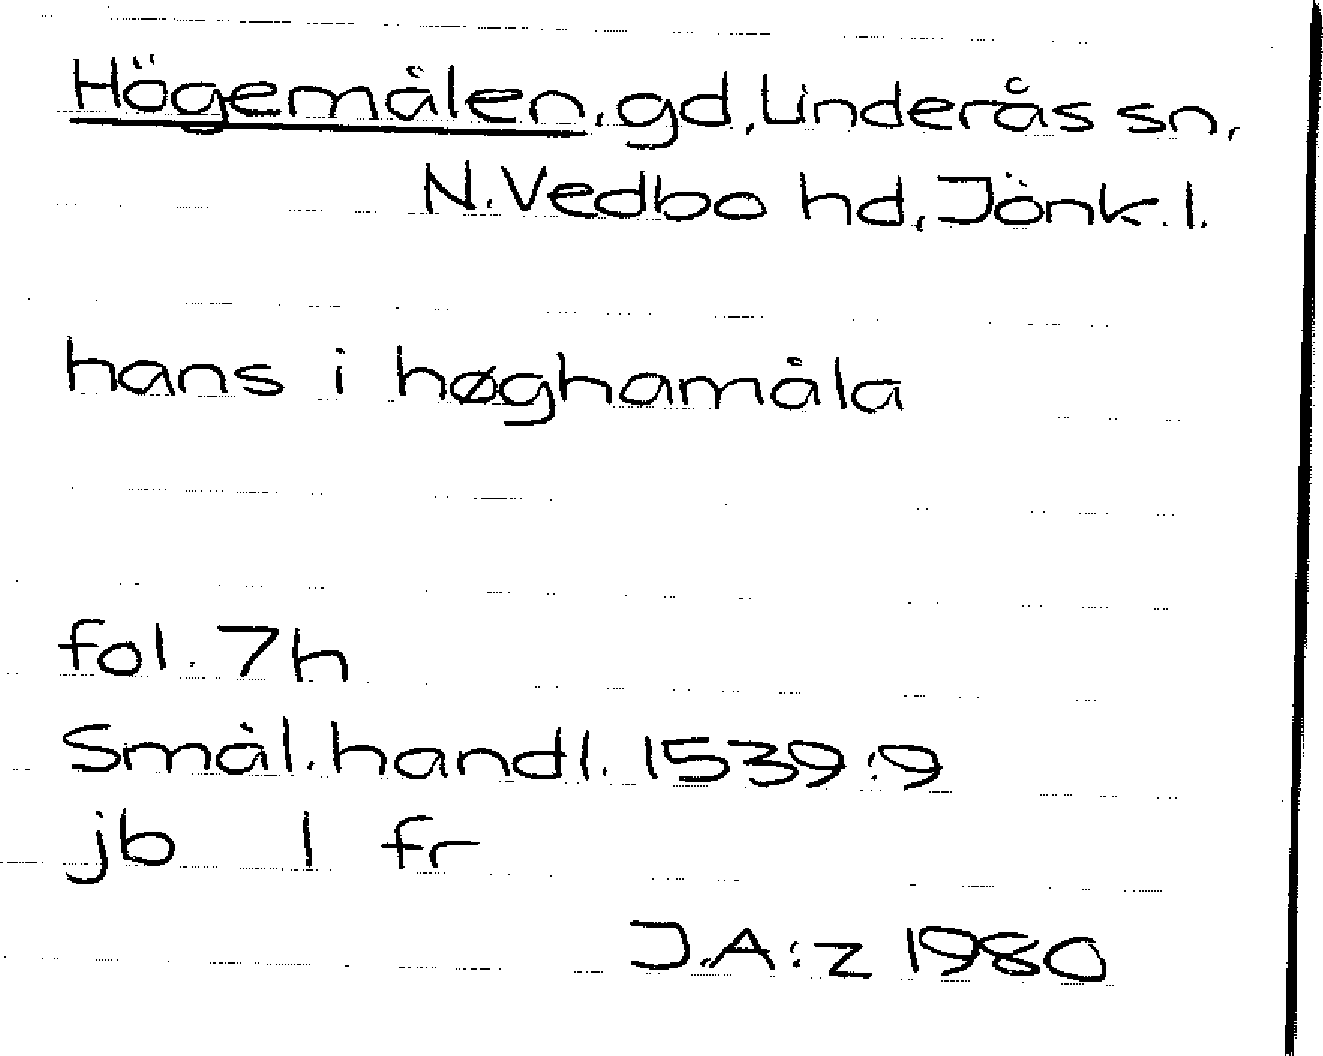 Högemålen, gd, Linderås sn,
N. Vedbo hd, Jönk. l.
hans i høghamåla
fol. 7h
Smål. handl. 1539:9
jb 1 fr
J.A:z 1980